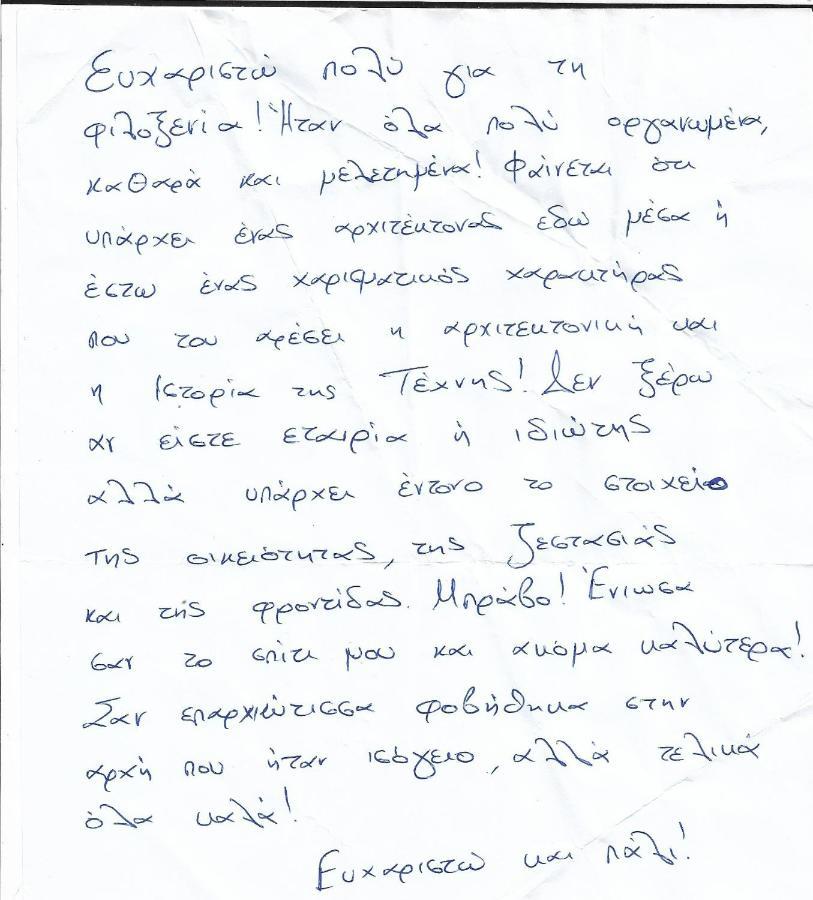 Ευχαριστώ πολύ για τη
φιλοξενία! Ήταν όλα πολύ οργανωμένα,
καθαρά και μελετημένα! Φαίνεται ότι
υπάρχει ένας αρχιτέκτονας εδώ μέσα ή
έστω ένας χαρισματικός χαρακτήρας
που του αρέσει η αρχιτεκτονική και
η Ιστορία της Τέχνης! Δεν ξέρω
αν είστε εταιρία ή ιδιώτης
αλλά υπάρχει έντονο το στοιχείο
της οικειότητας, της ζεστασιάς
και της φροντίδας. Μπράβο! Ένιωσα
σαν το σπίτι μου και ακόμα καλύτερα!
Σαν επαρχιώτισσα φοβήθηκα στην
αρχή που ήταν ισόγειο, αλλά τελικά
όλα καλά!
Ευχαριστώ και πάλι!